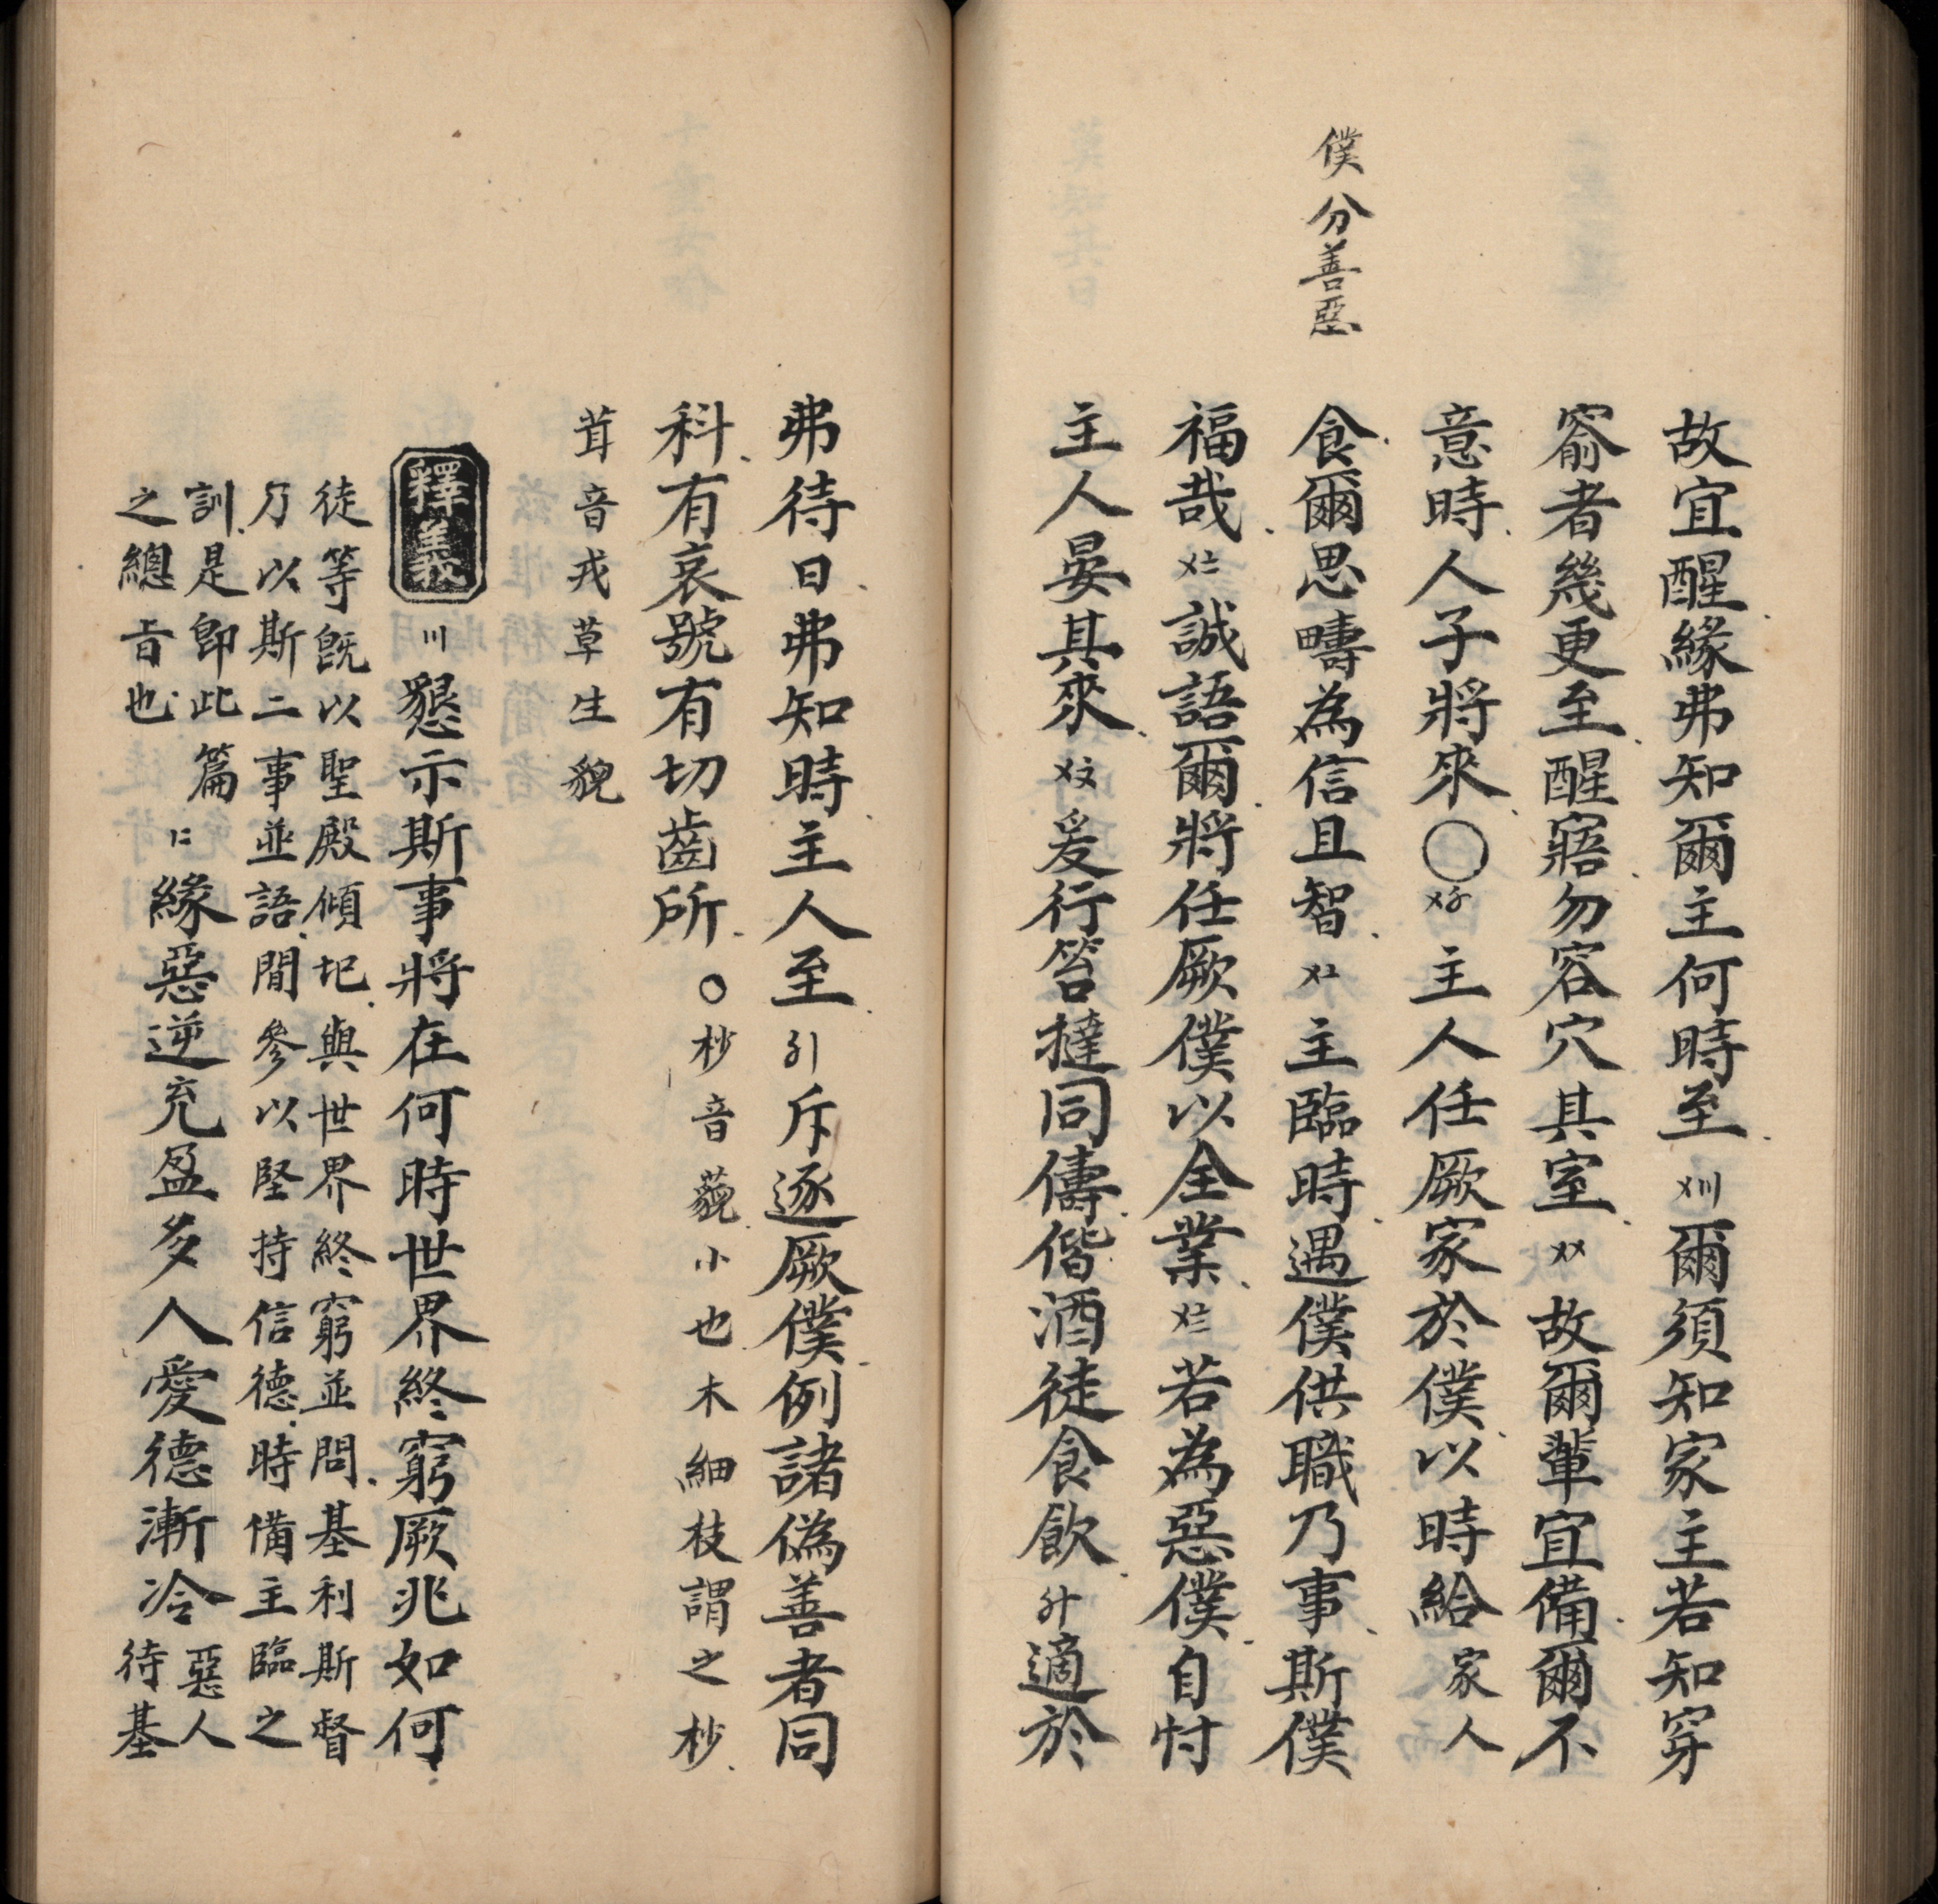 僕分善惡
故宜醒緣弗知爾主何時至〤〣爾須知家主若知穿
窬者幾更至醒寤勿容穴其室〤〤故爾輩宜備爾不
意時人子將來〇〤〥主人任厥家於僕以時給家人
食爾思疇為信且智〤〦主臨時遇僕供職乃事斯僕
福哉〤〧誠語爾將任厥僕以全業〤〨若為惡僕自忖
主人晏其來〤〩爰行笞撻同儔偕酒徒食飲〥十適於
弗待日弗知時主人至〥〡斥逐厥僕例諸偽善者同
科有哀號有切齒所〇杪音藐小也木細枝謂之杪
茸音戎草生貌
釋義
〣懇示斯事將在何時世界終窮厥兆如何
徒等既以聖殿傾圯與世界終窮並問基利斯督
乃以斯二事並語間參以堅持信德時備主臨之
訓是卽此篇
之總旨也
〡〢緣惡逆充盈多人愛德漸冷惡人
待基